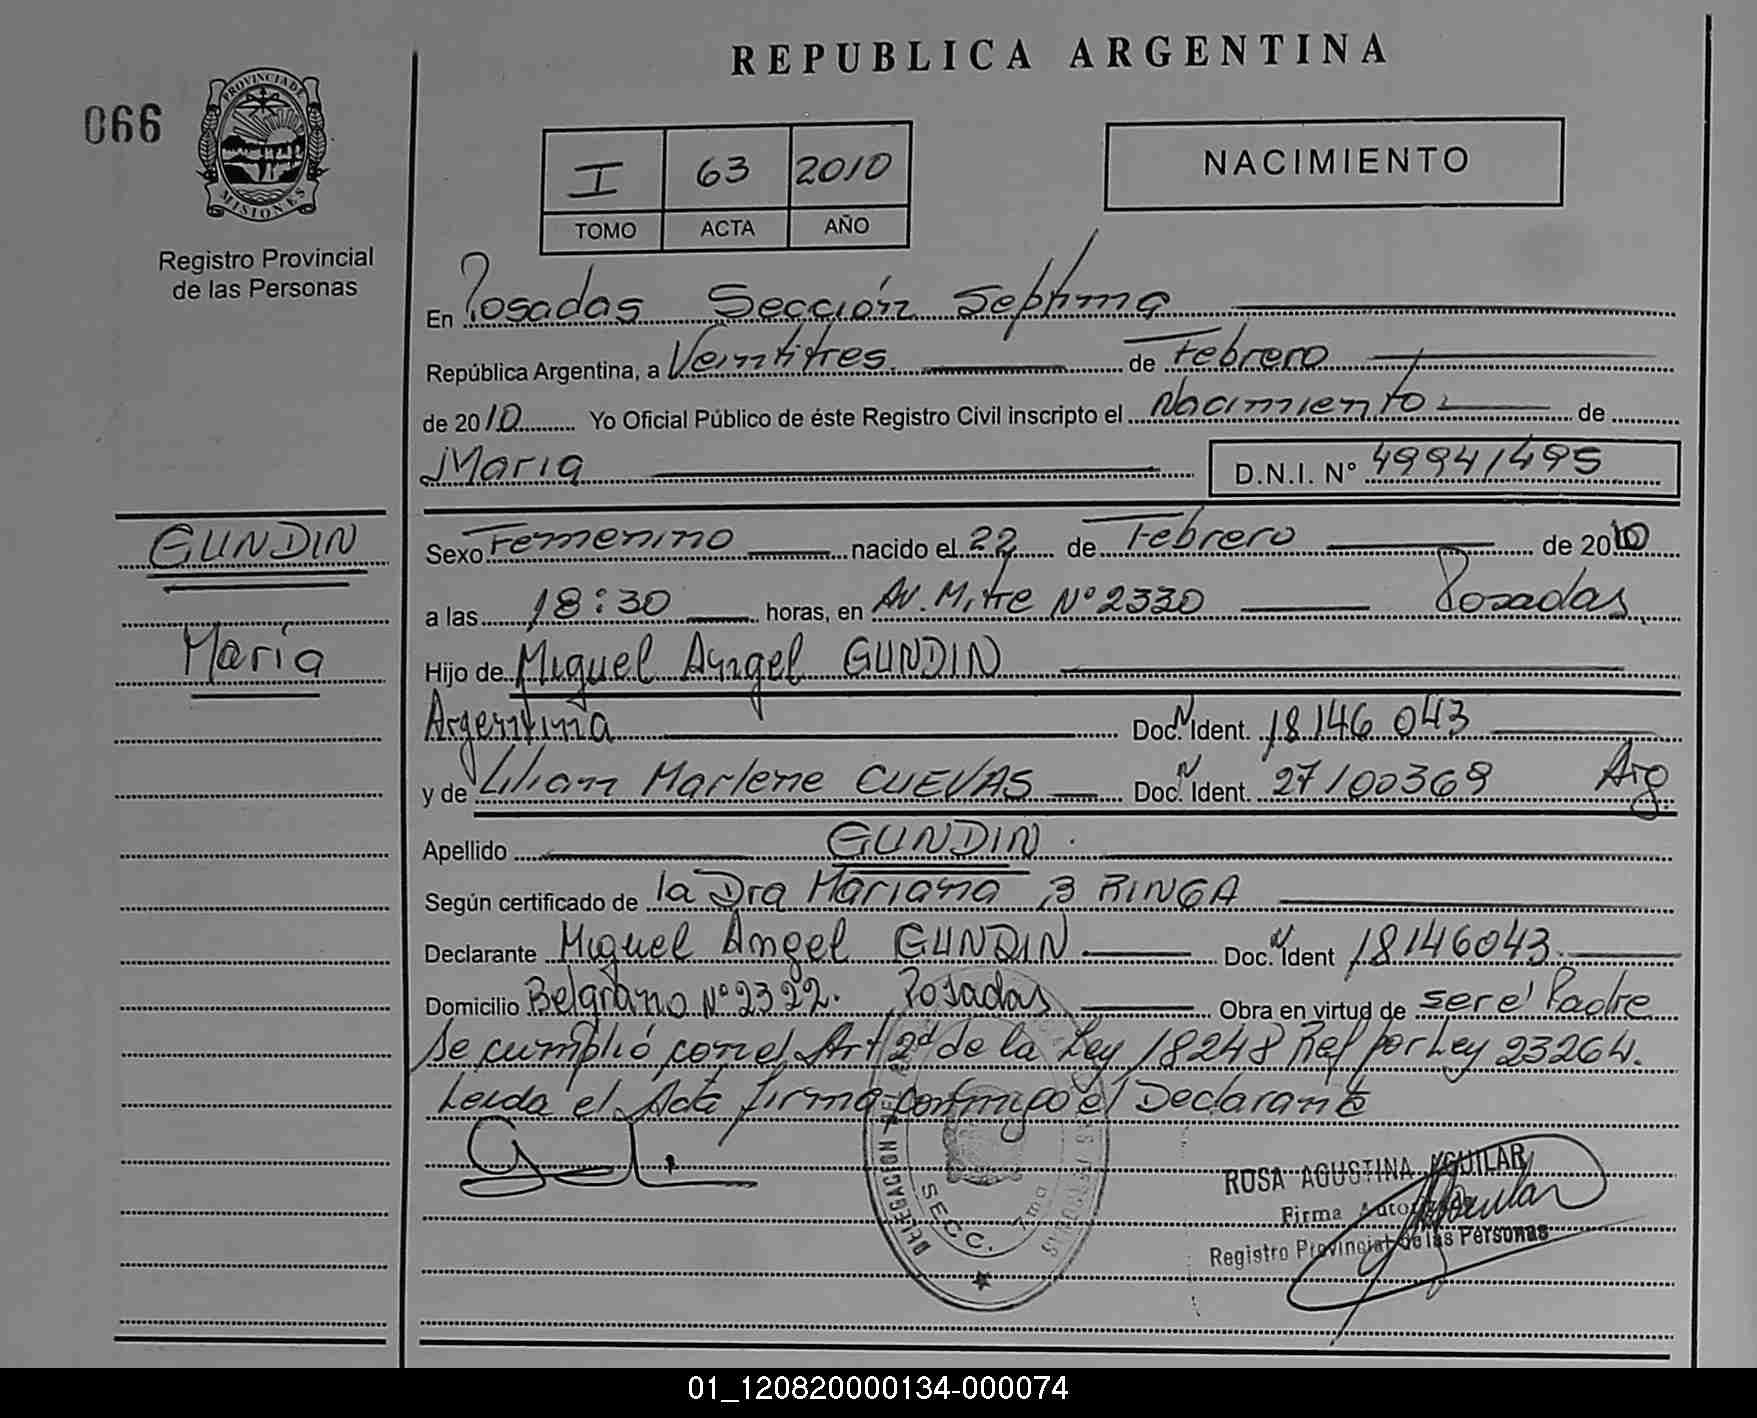 REPUBLICA ARGENTINA
066
PROVINCIA DE
MISIONES
Registro Provincial
de las Personas
I 63 2010
TOMO ACTA AÑO
NACIMIENTO
En Posadas Sección Septima
República Argentina, a Veintitres de Febrero
de 2010 Yo Oficial Público de éste Registro Civil inscripto el Nacimiento de
Maria D.N.I. Nº 49941495
GUNDIN
María
Sexo Femenino nacido el 22 de Febrero de 2010
a las 18:30 horas, en Av. Mitre Nº 2330 Posadas
Hijo de Miguel Angel GUNDIN
Argentina Doc. N Ident. 18146043
y de Lilian Marlene CUEVAS Doc. N Ident. 27100369 Arg.
Apellido GUNDIN
Según certificado de la Dra Mariana BRINGA
Declarante Miguel Angel GUNDIN Doc. N Ident 18146043
Domicilio Belgrano Nº 2322. Posadas Obra en virtud de ser el Padre
Se cumplió con el Art 2d de la Ley 18248 Ref por Ley 23264.
Leida el Acta firma conmigo el Declarante
DELEGACION
SECC. 7ma
ROSA AGUSTINA AGUILAR
Firma
Registro Provincial de las Personas
01_120820000134-000074